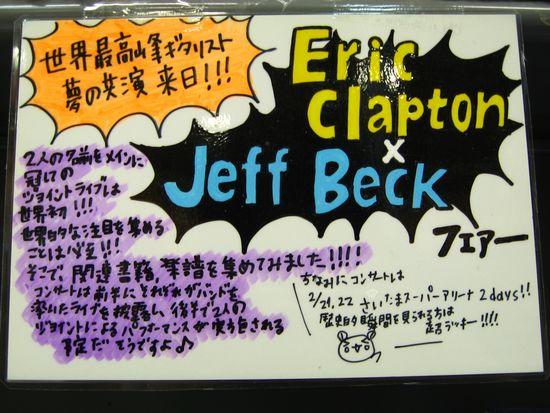 世界最高峰ギタリスト
夢の共演 来日!!!
Eric
Clapton
×
Jeff Beck
フェアー
2人の名前をメインに
冠しての
ジョイントライブは
世界初!!!
世界的な注目を集める
ことは必至!!!
そこで、関連書籍、楽譜を集めてみました!!!!
コンサートは前半にそれぞれがバンドを
率いたライブを披露し、後半で2人の
ジョイントによるパフォーマンスが実現される
予定だそうですよ♪
ちなみにコンサートは
2/21,22 さいたまスーパーアリーナ 2days!!
歴史的瞬間を見られる方は
超ラッキー!!!!